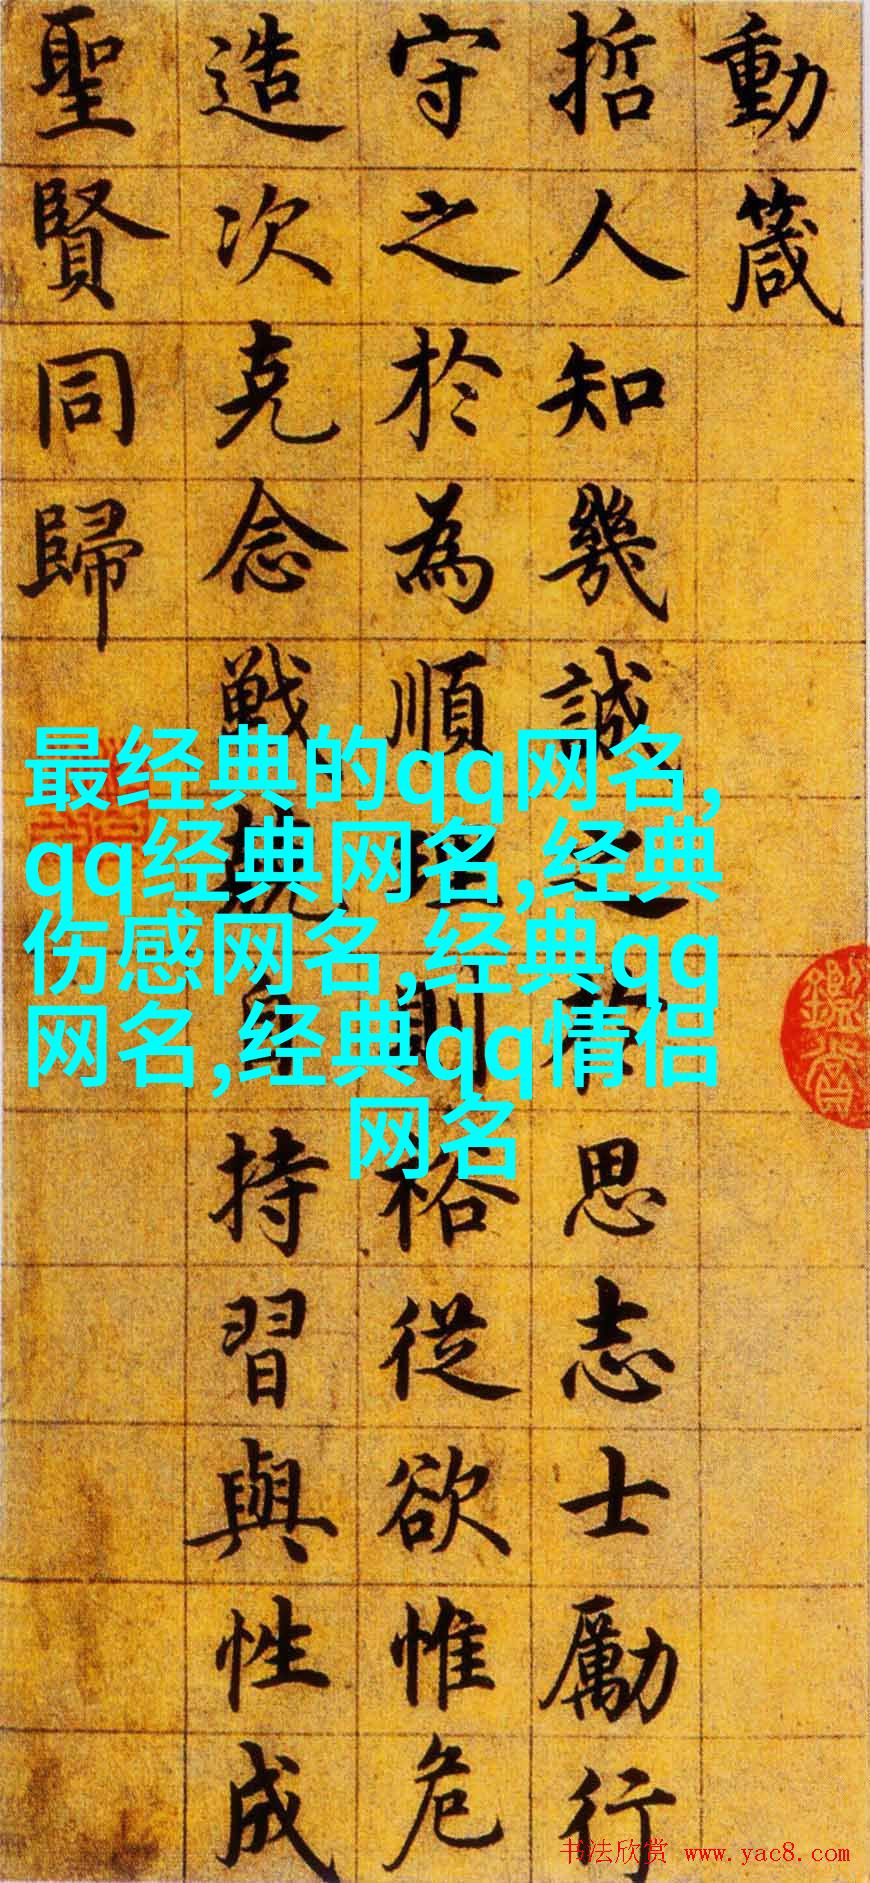 動箴
哲人知幾誠之於思志士勵行
守之於為順理則裕從欲惟危
造次克念戦兢自持習與性成
聖賢同歸
最经典的qq网名,
qq经典网名,经典
伤感网名,经典qq
网名,经典qq情侣
网名
书法欣赏 www.yac8.com